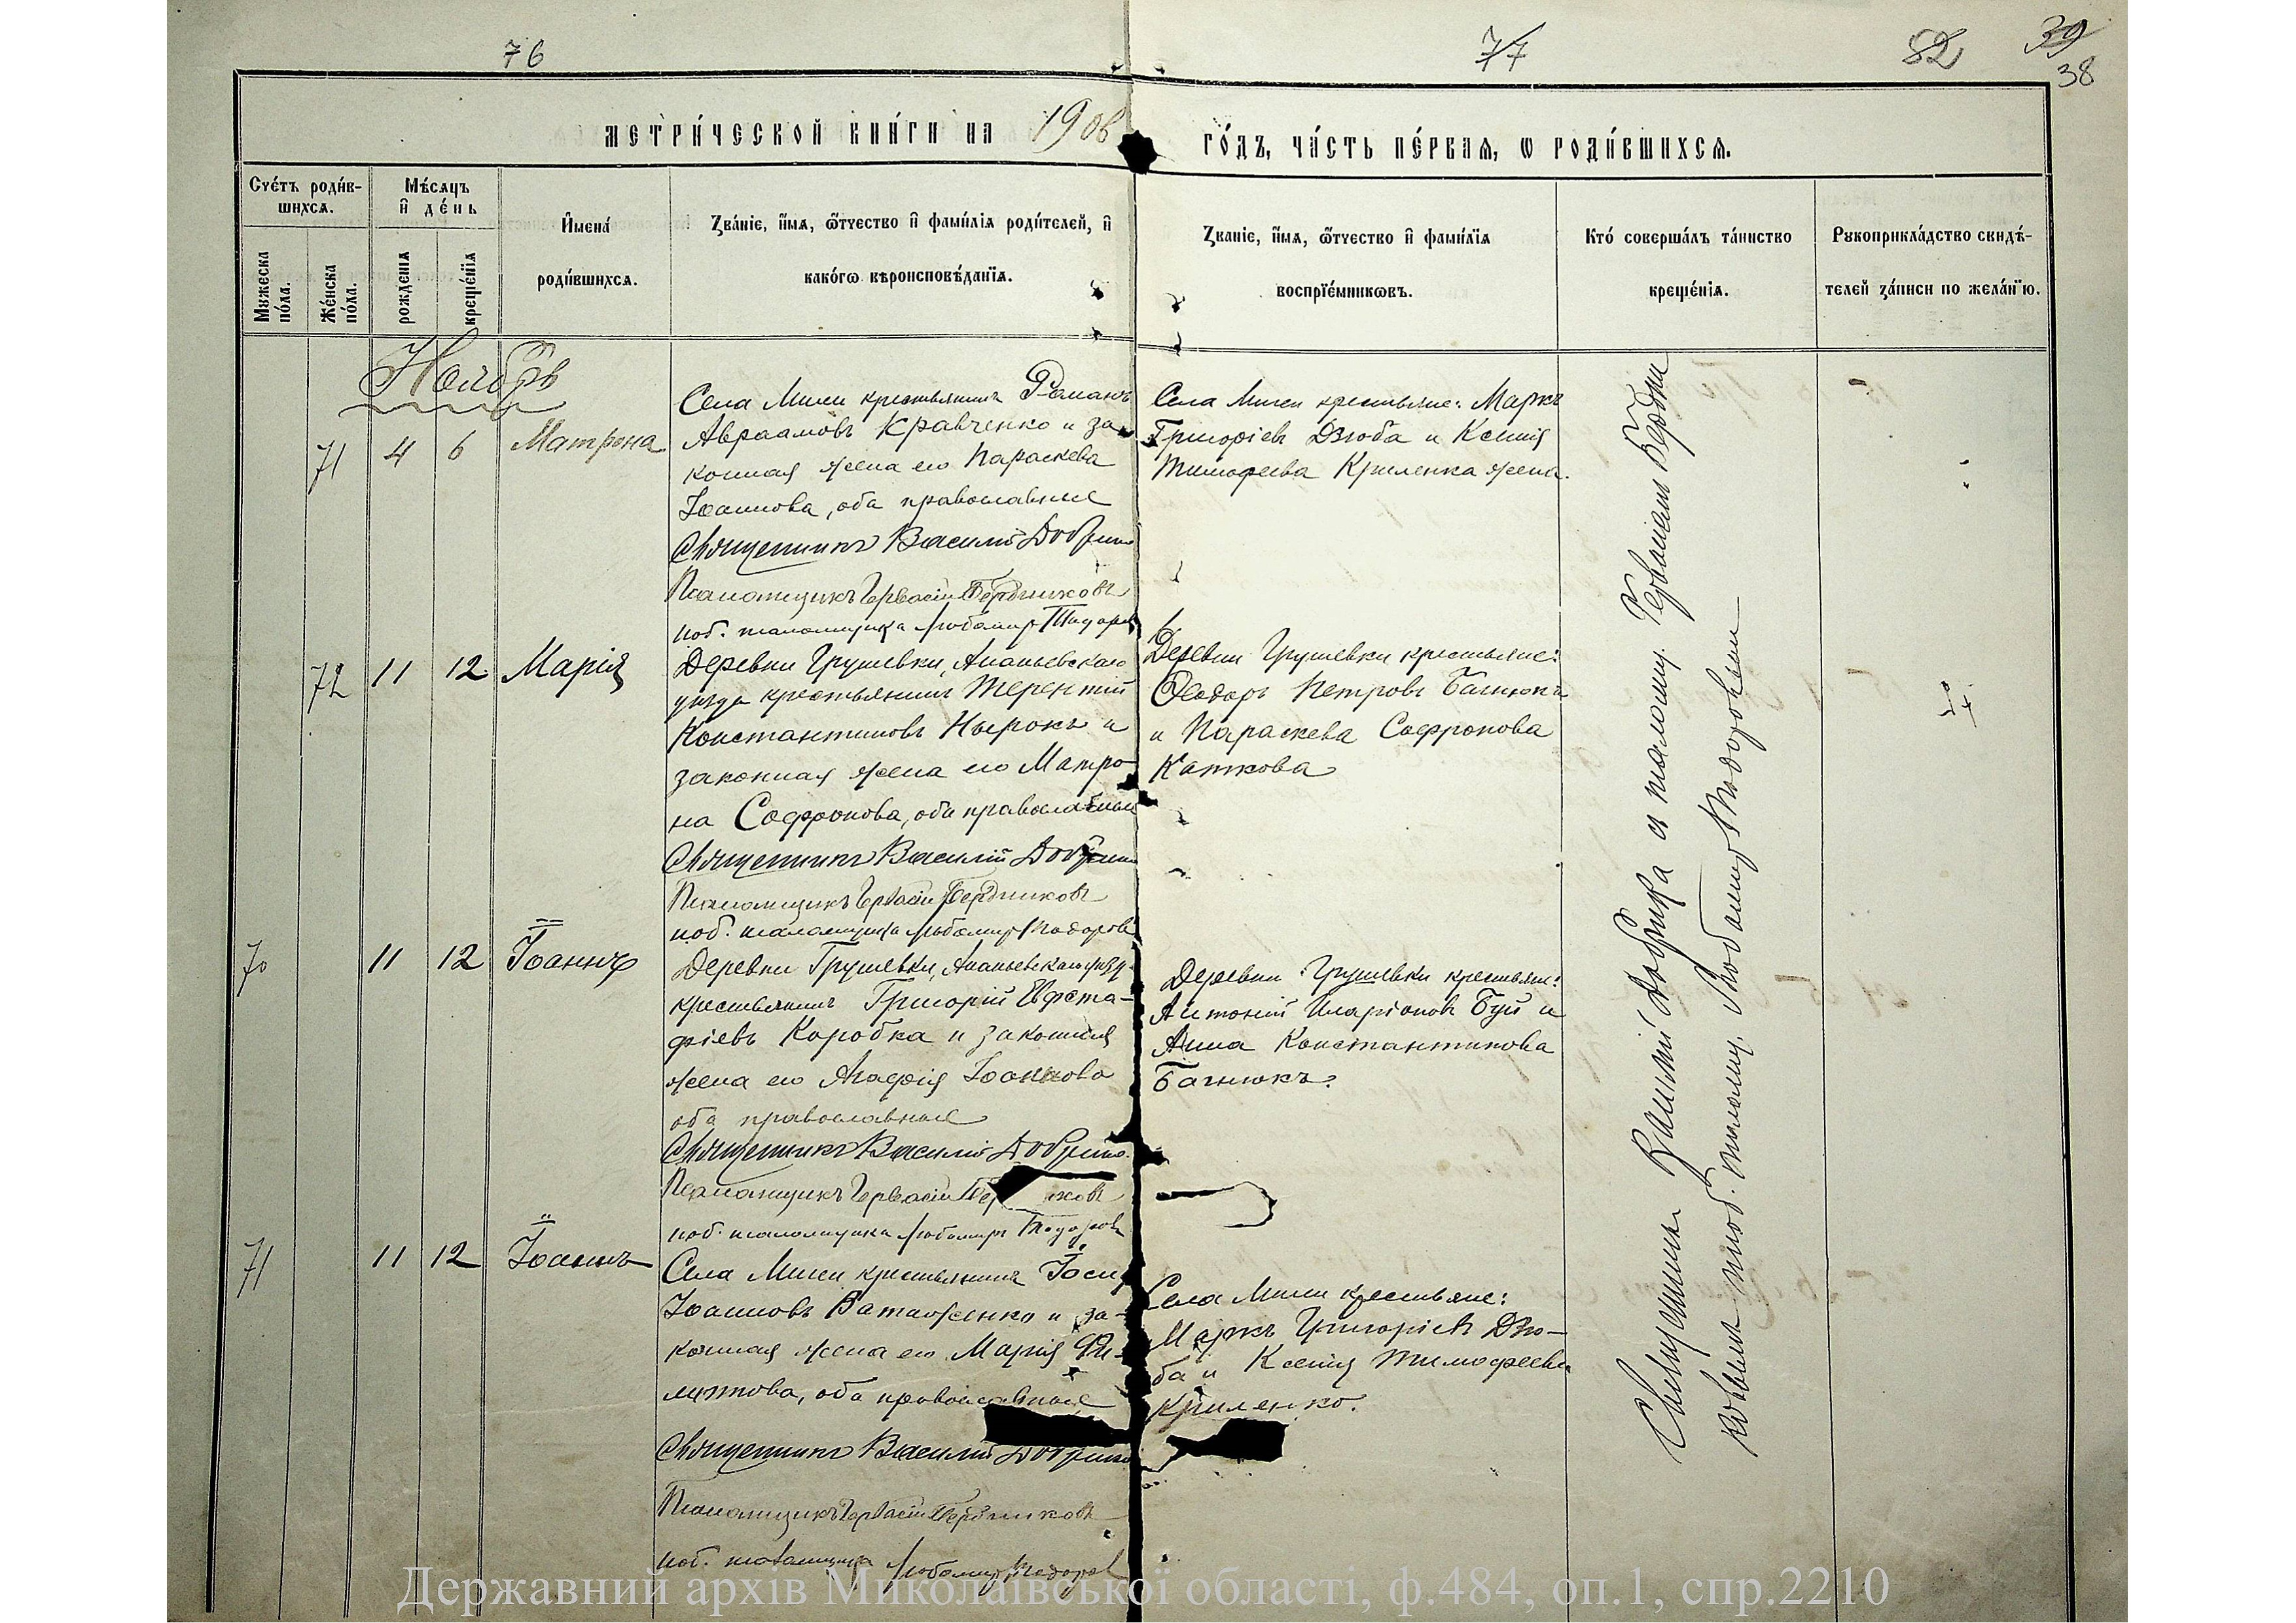 76
77
82
39
38
МЕТРИ́ЧЕСКОЙ КНИ́ГИ НА 1908
ГО́ДЪ, ЧА́СТЬ ПЕ́РВАЯ, Ѡ РОДИ́ВШИХСЯ.
Сче́тъ роди́в-
шихся.
Мѣ́сяцъ
и҆ де́нь
Мꙋжеска
по́ла.
Же́нска
по́ла.
рожденїя
креще́нїя
И҆мена́
роди́вшихся.
Зва́нїе, и҆́мя, ѻ҆́тчество и҆ фами́лїя роди́телей, и҆
како́гѡ вѣроисповѣ́данїя.
Званїе, и҆́мя, ѻ҆́тчество и҆ фами́лїя
воспрїе́мникѡвъ.
Кто́ соверша́лъ та́инство
креще́нїя.
Рꙋкоприкла́дство свидѣ́-
телей за́писи по жела́нїю.
Ноябрь
71 4 6 Матрона
Села Мигеи крестьянинъ Романъ
Авраамовъ Кравченко и за-
конная жена его Параскева
Іоаннова, оба православные
Священникъ Василій
Псаломщикъ Гервасій Бердниковъ
поб. псаломщика Любомиръ Тодоровъ
Села Мигеи крестьяне: Маркъ
Григоріевъ Дзюба и Ксенія
Тимофеева Криленка жена.
72 11 12 Марія
Деревни Грушевки, Ананьевскаго
уѣзда крестьянинъ Терентій
Константиновъ Нырокъ и
законная жена его Матро-
на Софронова, оба православные
Священникъ Василій
Псаломщикъ Гервасій Бердниковъ
поб. псаломщика Любомиръ Тодоровъ
Деревни Грушевки крестьяне:
Ѳеодоръ Петровъ Багнюкъ
и Параскева Софронова
Каткова
70 11 12 Іоаннъ
Деревни Грушевки, Ананьевскаго уѣзд.
крестьянинъ Григорій Евста-
фіевъ Коробка и законная
жена его Агафія Іоаннова
оба православные
Священникъ Василій
Псаломщикъ Гервасій
поб. псаломщика Любомиръ Тодоровъ
Деревни Грушевки крестьяне:
Антоній Иларіоновъ Буй и
Анна Константинова
Багнюкъ.
71 11 12 Іоаннъ
Села Мигеи крестьянинъ Іосиф
Іоанновъ Ватаженко и за-
конная жена его Марія Фи-
липпова, оба православные
Священникъ Василій
Псаломщикъ Гервасій Бердниковъ
поб. псаломщика Любомиръ Тодоровъ
Села Мигеи крестьяне:
Маркъ Григоріевъ Дзю-
ба и Ксенія Тимофеева
Криленко.
Священникъ Василій съ псаломщ. Гервасіемъ Бердни
ковымъ и поб. псаломщ. Любомиръ Тодоровымъ
Державний архів Миколаївської області, ф.484, оп.1, спр.2210